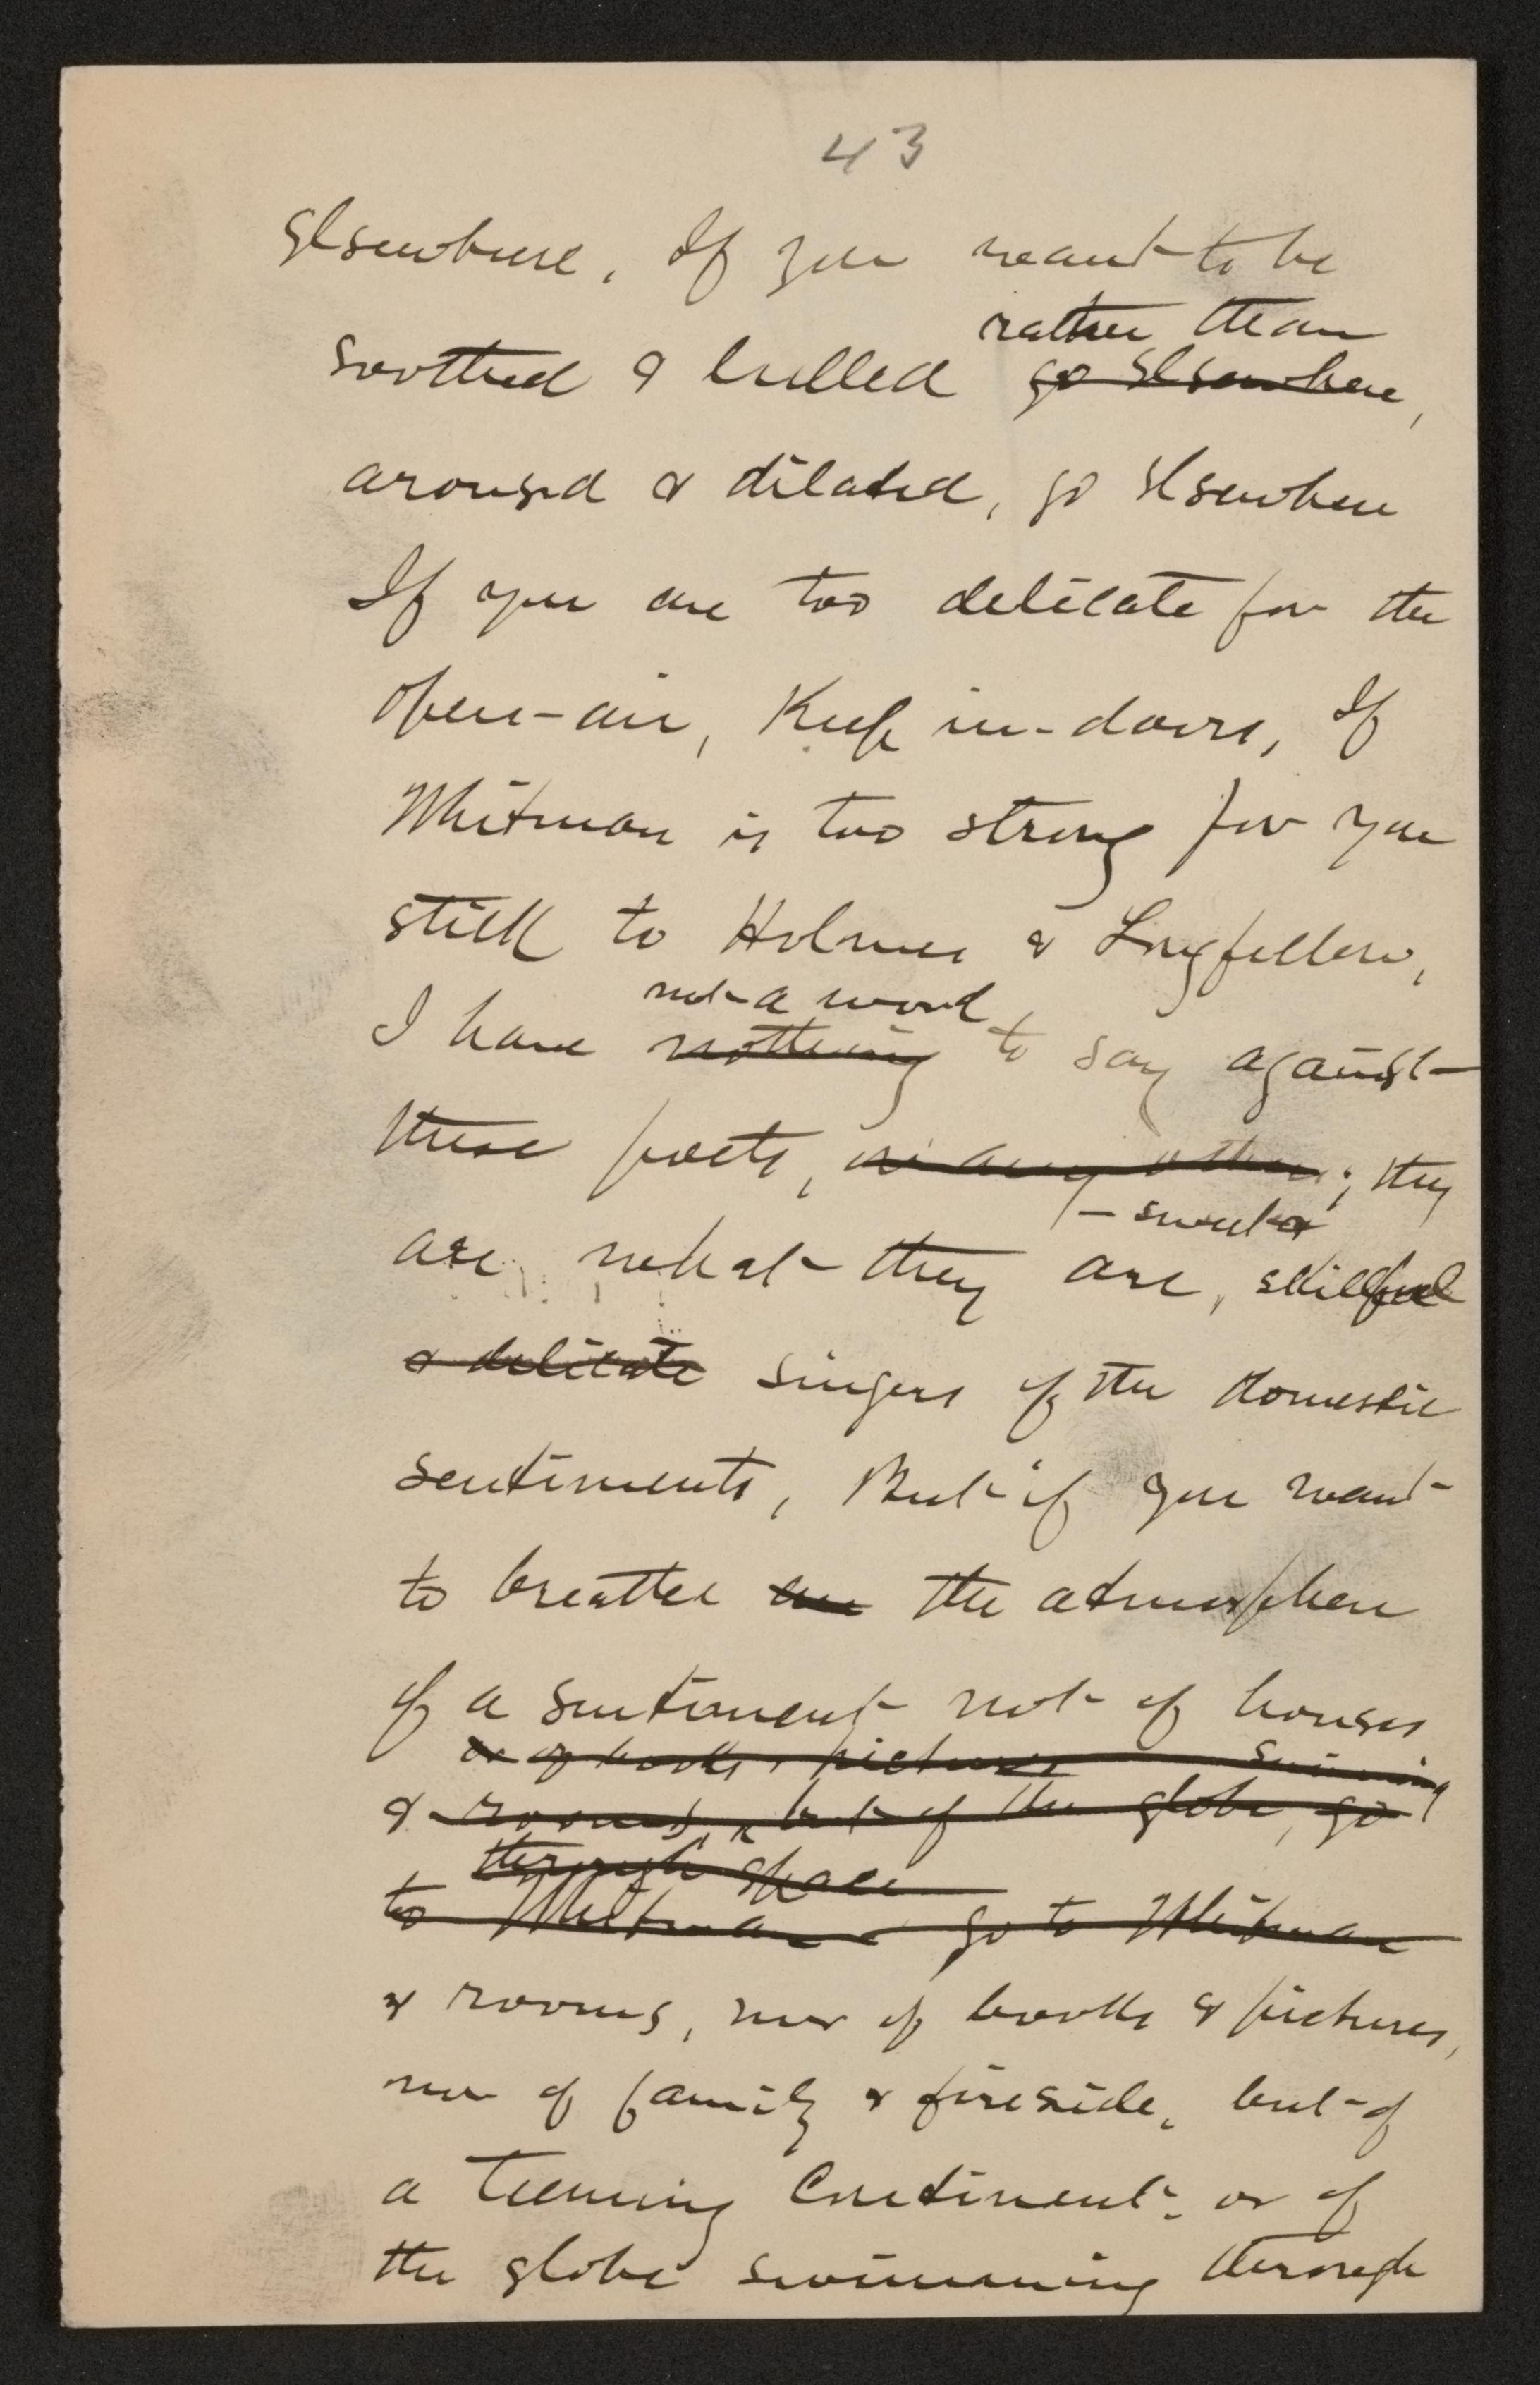 43
Elsewhere. If you want to be
rather than
soothed & lulled go elsewhere,
aroused & dilated, go elsewhere
If you are too delicate for the
open-air, Keep in-doors, If
Whitman is too strong for you
stick to Holmes & Longfellow,
not a word
I have nothing to say against
these poets, or any other; they
– sweet &
are what they are, skillful
& delicate singers of the domestic
sentiments, But if you want
to breathe an the atmosphere
of a sentiment not of houses
or of books & pictures swimming
& rooms, but of the globe, go
through space
to Whitman go to Whitman
& rooms, nor of books & pictures,
nor of family & fireside, but of
a teeming Continent, or of
the globe swimming through